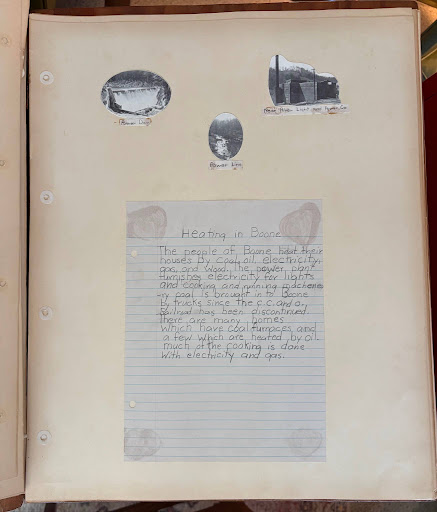 Power Line
Heating in Boone
The people of Boone heat their
houses by coal, oil, electricity,
gas, and wood. The power plant
furnishes electricity for lights
and cooking and running machine
ry coal is brought in to Boone
by trucks since the
railroad has been discontinued.
There are many homes
which have coal furnaces and
a few which are heated by oil
much of the cooking is done
with electricity and gas.